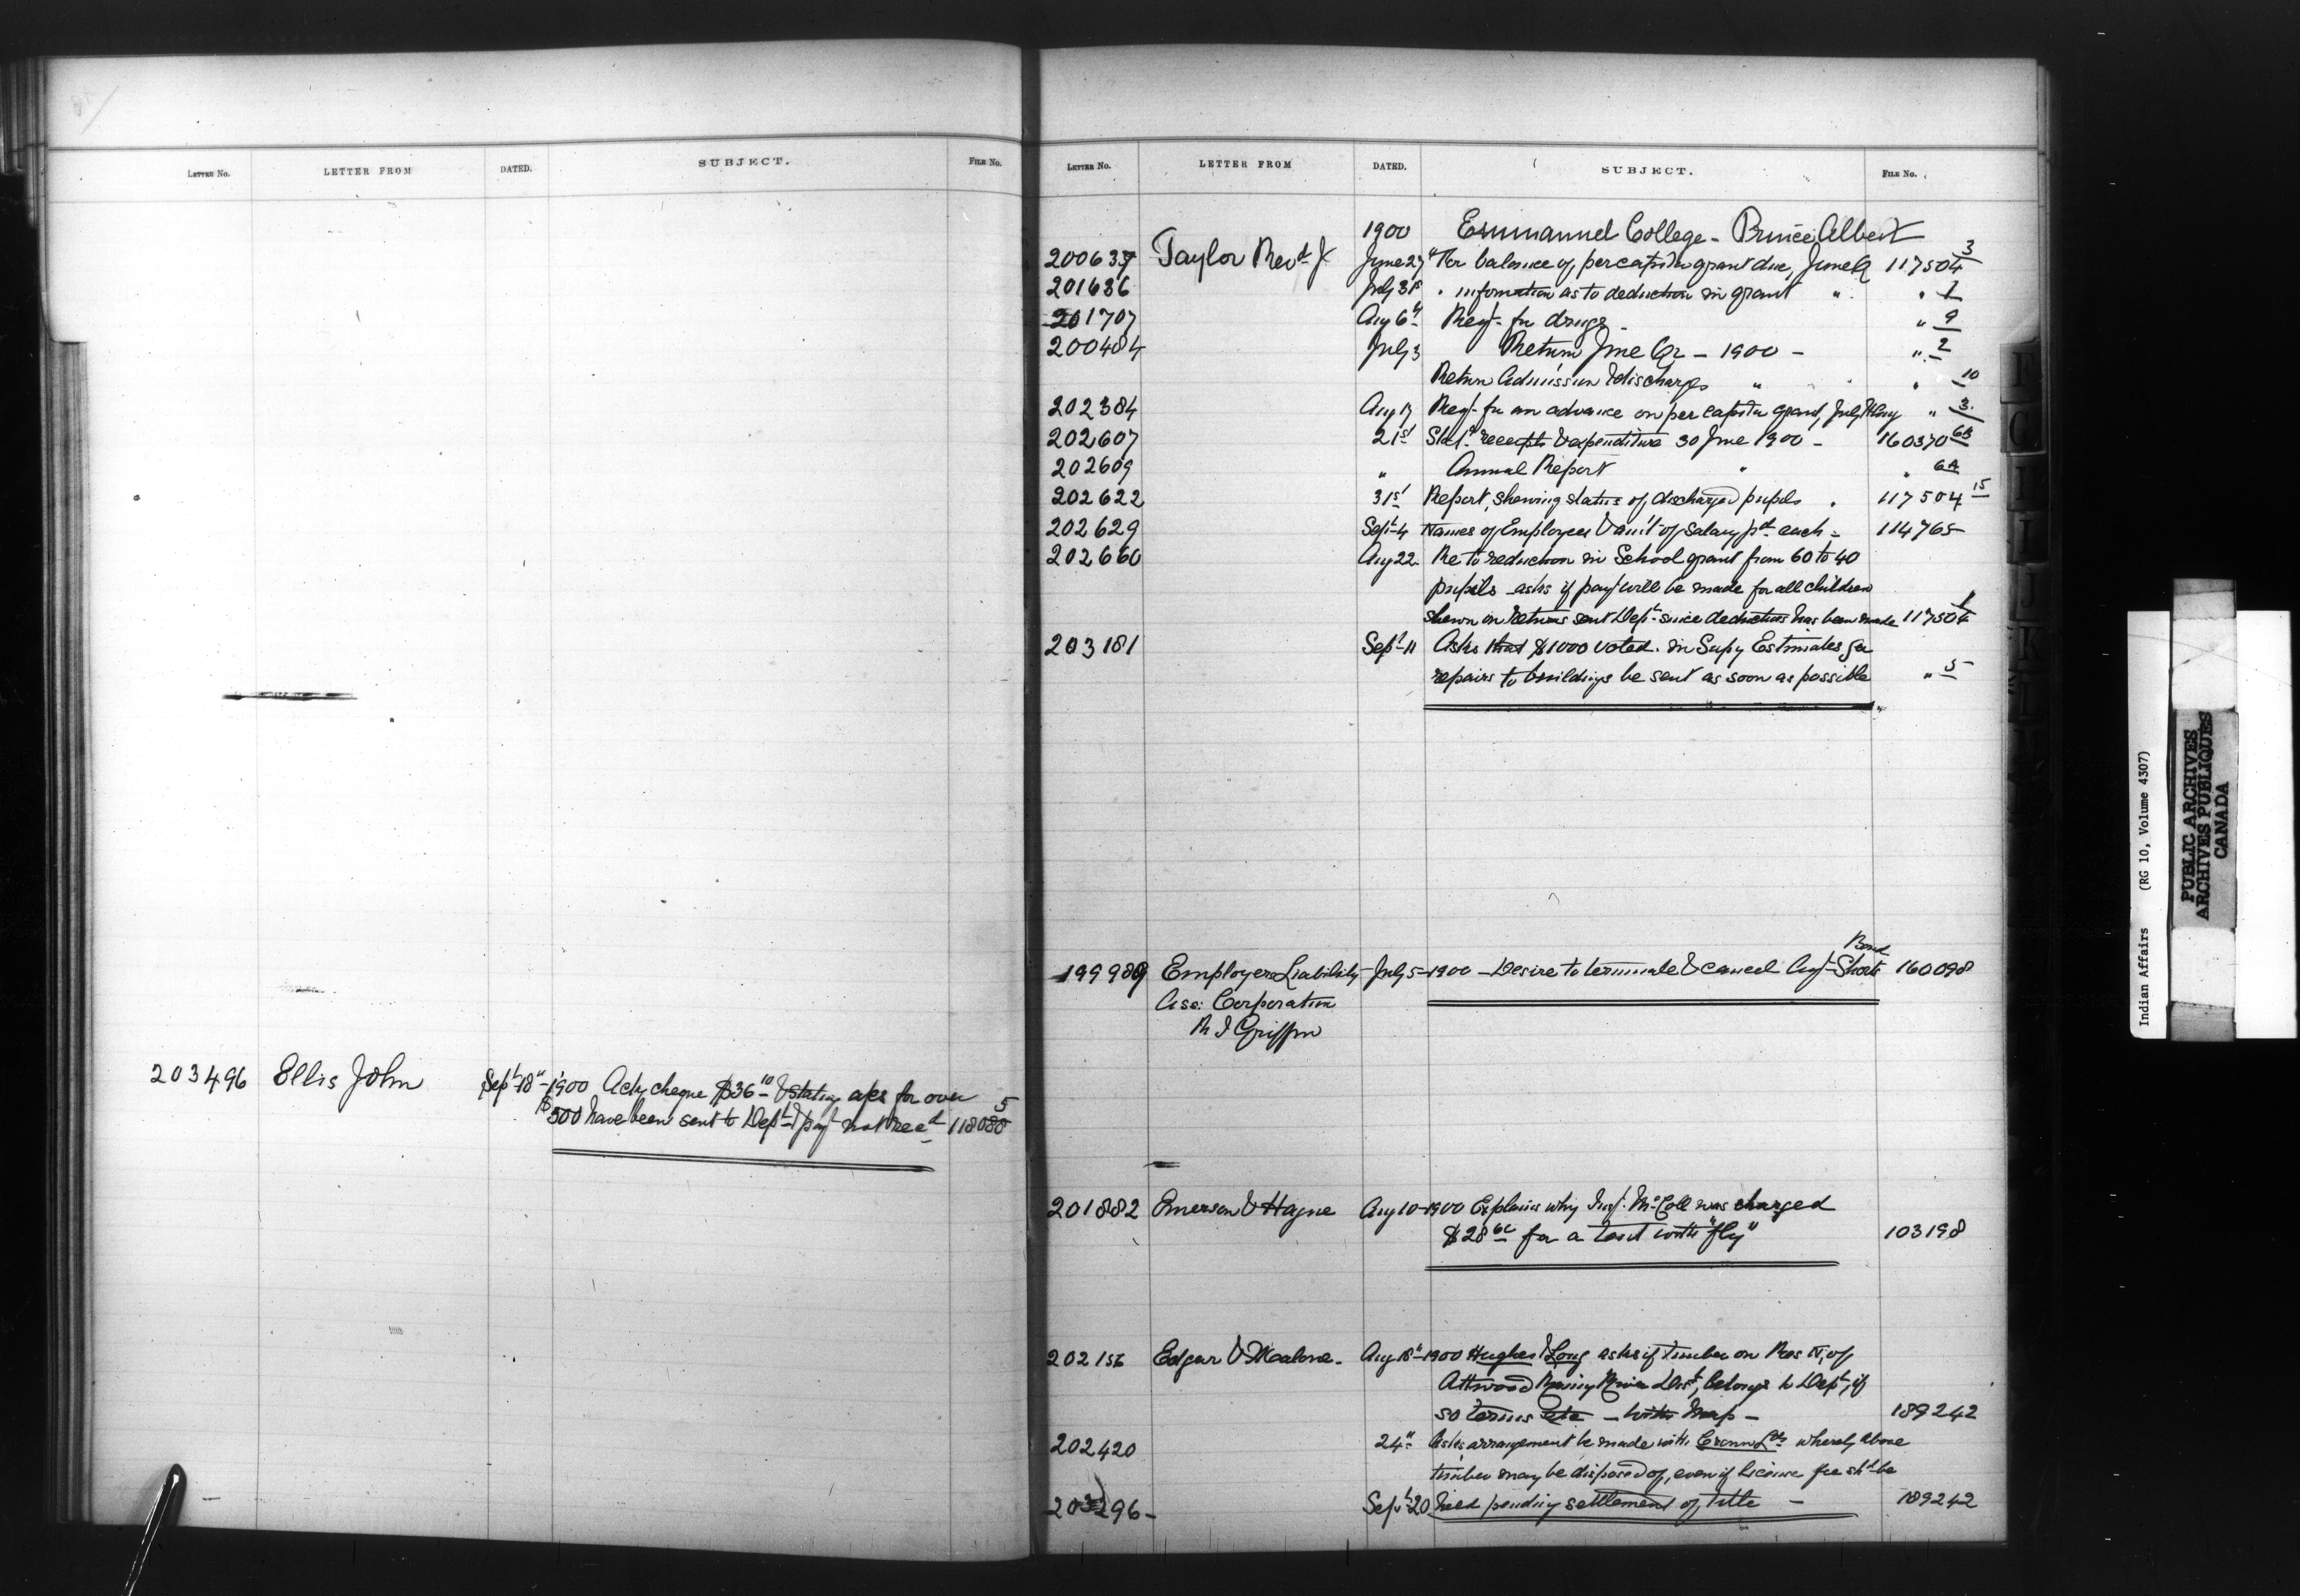 LETTER No. LETTER FROM DATED. SUBJECT. FILE No.
203496 Ellis John Sept 18" 1900 Ack cheque $36 10 & stating a/cs for over
$500 have been sent to Dept & payt not recd 118080 5
LETTER No. LETTER FROM DATED. SUBJECT. FILE No.
1900 Emmanuel College - Prince Albert
200637 Taylor Revd J. June 27 "Per balance of per capita grant due, June Q 117504 3
201636 July 31st " information as to deduction in grant " " 1
201707 Aug 6th Reqt for drugs - " 9
200484 July 3 Return June Qr - 1900 - " 2
Return Admission & discharges " " 10
202384 Aug 17 Reqt for an advance on per capita grant, July & Aug " 3
202607 21st Statt receipts & expenditure 30 June 1900 - 160370 6B
202609 " Annual Report " " 6A
202622 31st Report, shewing status of discharged pupils " 117504 15
202629 Sept 4 Names of Employees & amt of salary pd each - 114765
202660 Aug 22 Re to reduction in School grant from 60 to 40
pupils - asks if payt will be made for all children
shewn on returns sent Dept since deduction has been made 117504 1
203181 Sept 11 Asks that $1000 voted in Supy Estimates for
repairs to buildings be sent as soon as possible " 5
199989 Employers Liability July 5 1900 - Desire to terminate & cancel Agt Shorts Bond 160098
Ass: Corporation
R I Griffin
201882 Emerson & Hague Aug 10 1900 Explains why Insp. McColl was charged
$28 60 for a tent with "fly" 103198
202156 Edgar & Malone - Aug 18" 1900 Hughes & Long asks if timber on Res N, of
Attwood Rainy River Dist, belongs to Dept, if
so terms etc - with Map - 189242
202420 24" Asks arrangement be made with Crown Lds whereby above
timber may be disposed of, even if license fee shd be
203296 - Sept 20 held pending settlement of title - 189242
Indian Affairs (RG 10, Volume 4307)
PUBLIC ARCHIVES
ARCHIVES PUBLIQUES
CANADA